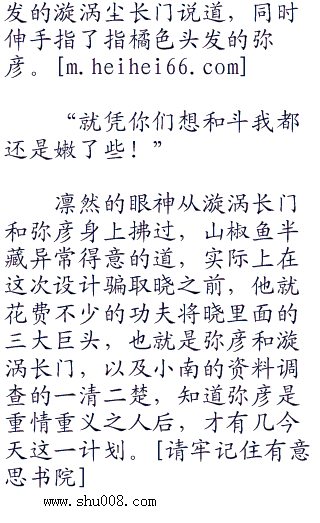 发的漩涡尘长门说道，同时
伸手指了指橘色头发的弥
彦。[m.heihei66.com]
“就凭你们想和斗我都
还是嫩了些！”
凛然的眼神从漩涡长门
和弥彦身上拂过，山椒鱼半
藏异常得意的道，实际上在
这次设计骗取晓之前，他就
花费不少的功夫将晓里面的
三大巨头，也就是弥彦和漩
涡长门，以及小南的资料调
查的一清二楚，知道弥彦是
重情重义之人后，才有几今
天这一计划。[请牢记住有意
思书院]
www.shu008.com